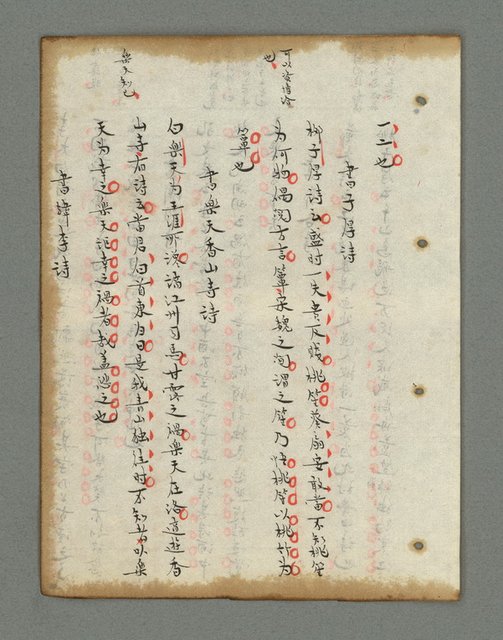 一二也
書子厚詩
柳子厚詩云盛時一失貴反賤桃笙葵扇安敢當不知桃笙
為何物偶閱方言簟宋魏之間謂之笙乃悟桃笙以桃竹為
簟也
書樂天香山寺詩
白樂天為王涯所讒謫江州司馬甘露之禍樂天在洛適遊香
山寺有詩云當君白首同歸日是我青山獨往時不知者以樂
天為幸之樂天豈幸之禍者哉蓋悲之也
書韓李詩
可以發詩冷
也
樂天知己